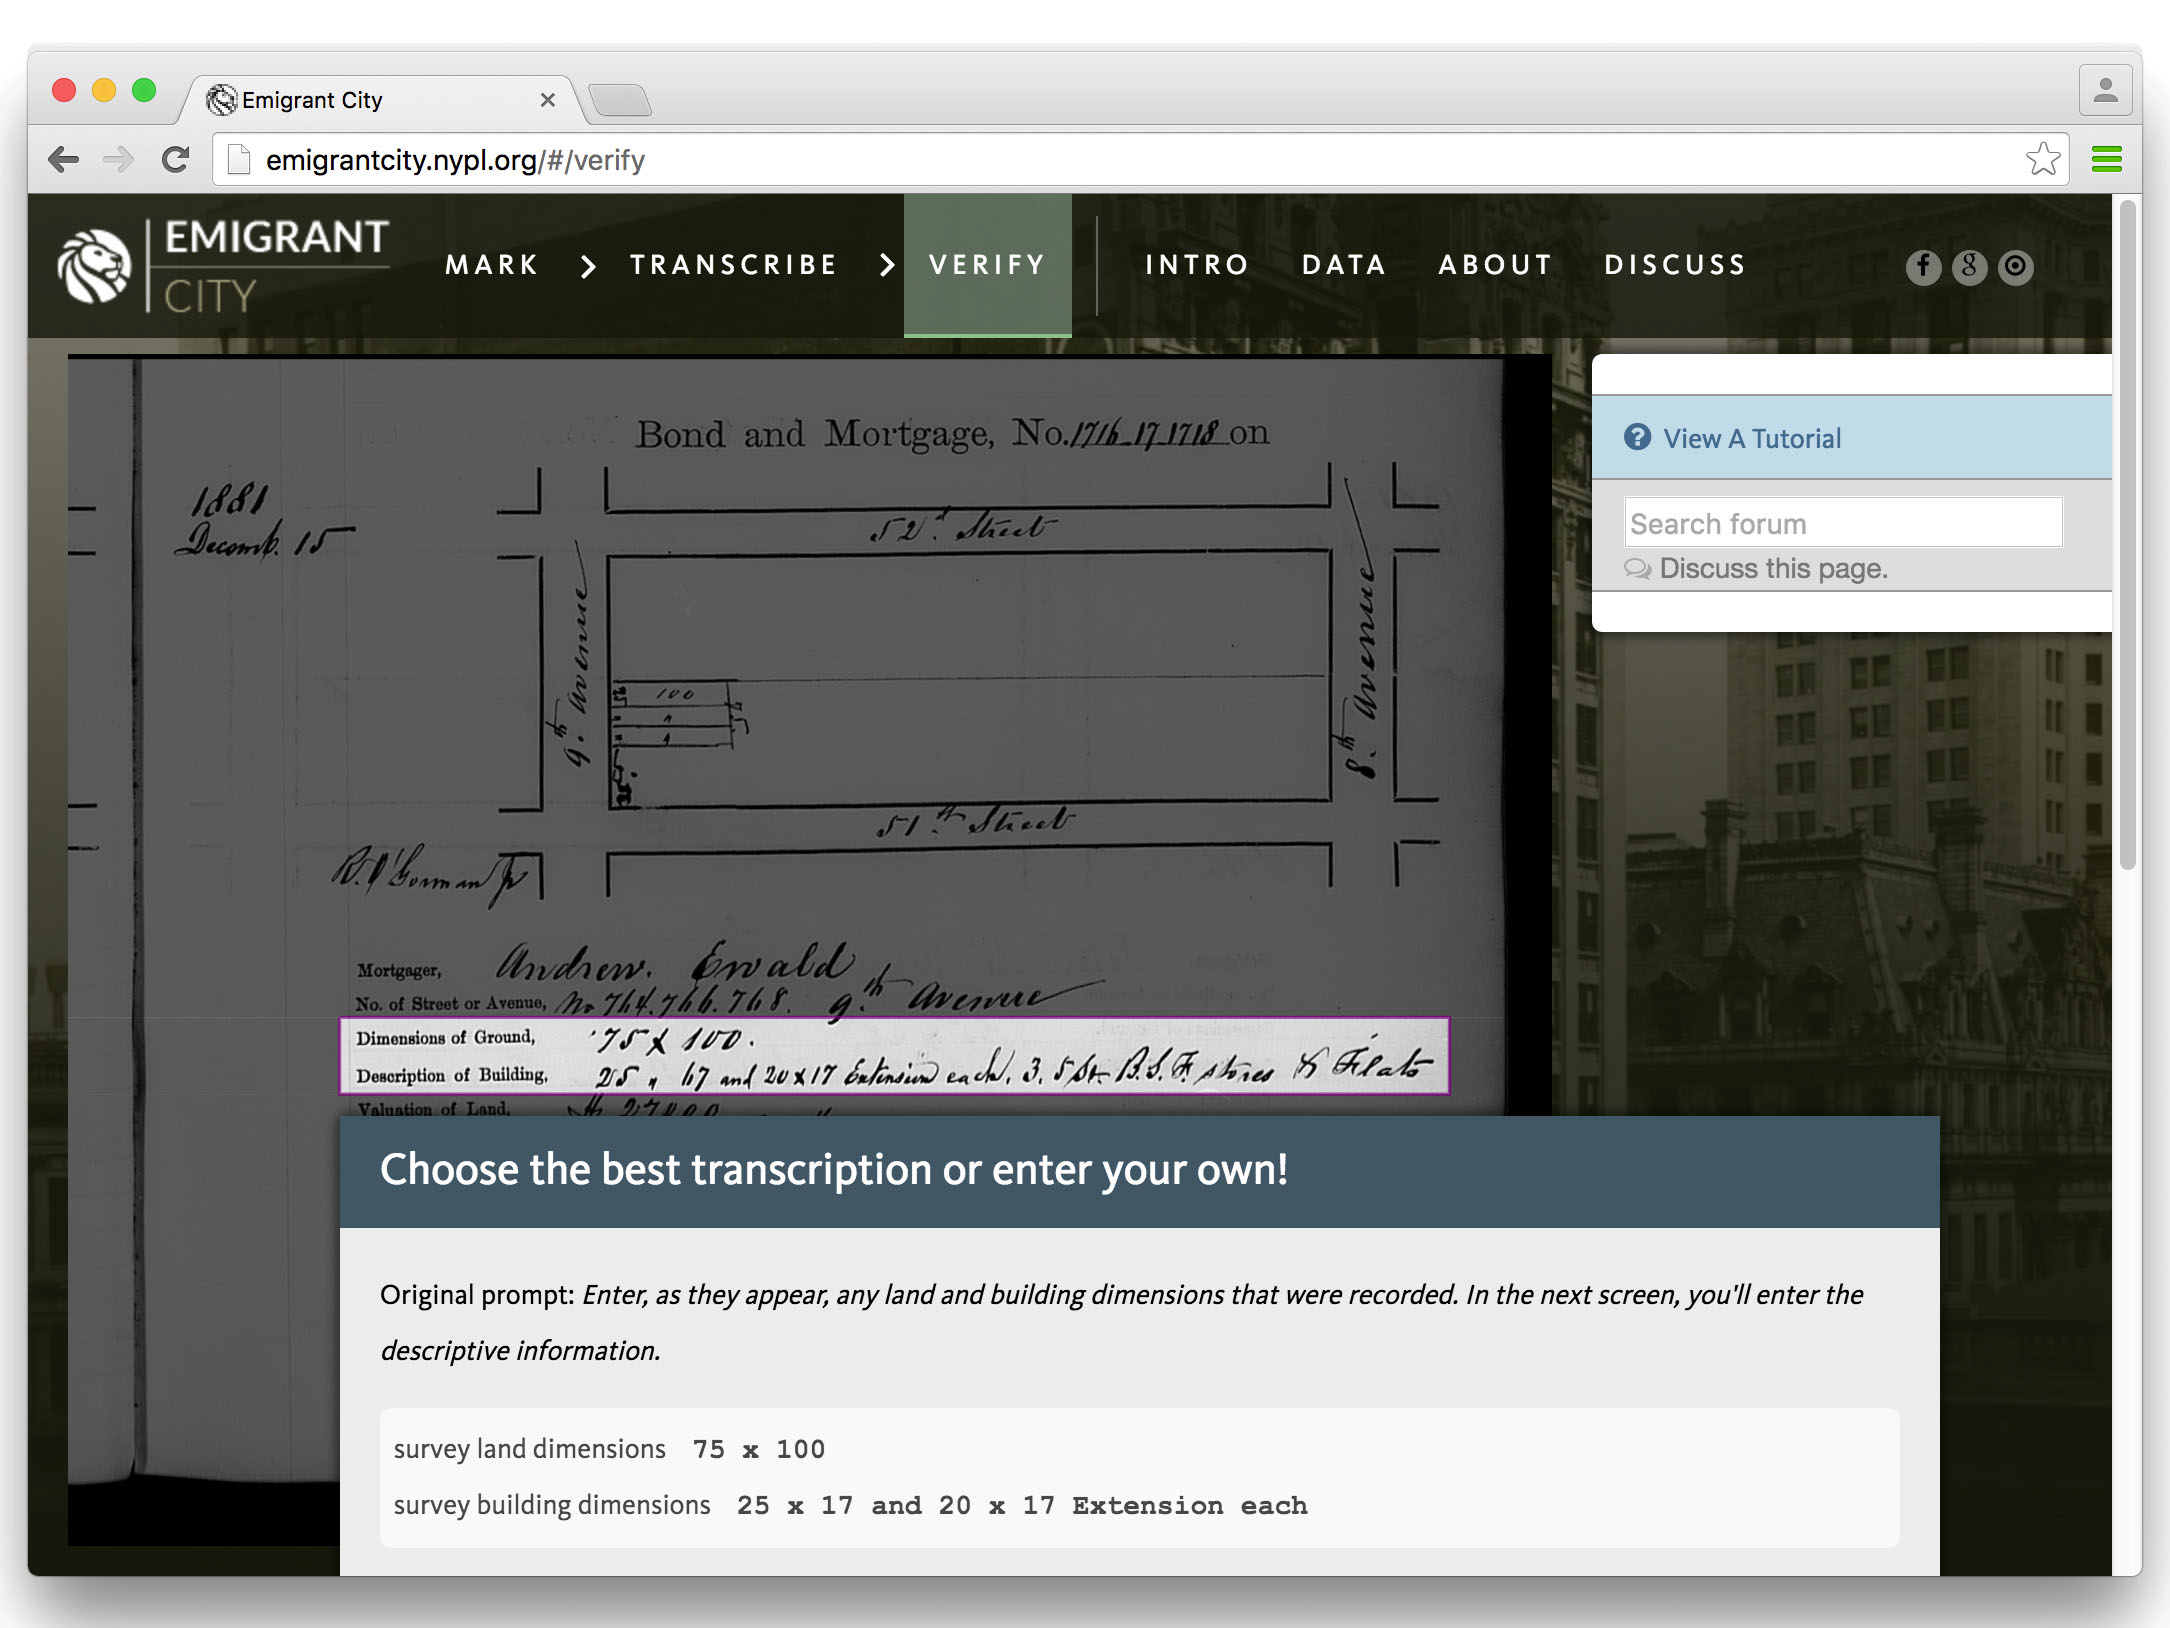 Emigrant City
emigrantcity.nypl.org/#/verify
EMIGRANT
CITY
MARK
TRANSCRIBE
VERIFY
INTRO
DATA
ABOUT
DISCUSS
Bond and Mortgage, No. 1716_17_1718 on
1881
Decemb. 15
52d. Street
9th. Avenue
8th. Avenue
25
100
51th Street
R. O'Gorman Jr
Mortgager, Andrew. Ewald
No. of Street or Avenue, No 764. 766. 768. 9th Avenue
Dimensions of Ground, 75 x 100.
Description of Building, 25 " 67 and 20 x 17 Extension each. 3. 5 St. B. S. F. stores & Flats
Valuation of Land,
View A Tutorial
Search forum
Discuss this page.
Choose the best transcription or enter your own!
Original prompt: Enter, as they appear, any land and building dimensions that were recorded. In the next screen, you'll enter the
descriptive information.
survey land dimensions 75 x 100
survey building dimensions 25 x 17 and 20 x 17 Extension each